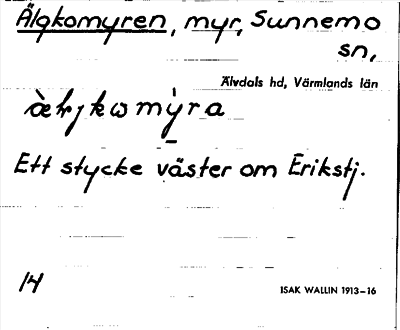 Älgkomyren, myr, Sunnemo
sn,
Älvdals hd, Värmlands län
Ett stycke väster om Erikstj.
14
ISAK WALLIN 1913–16